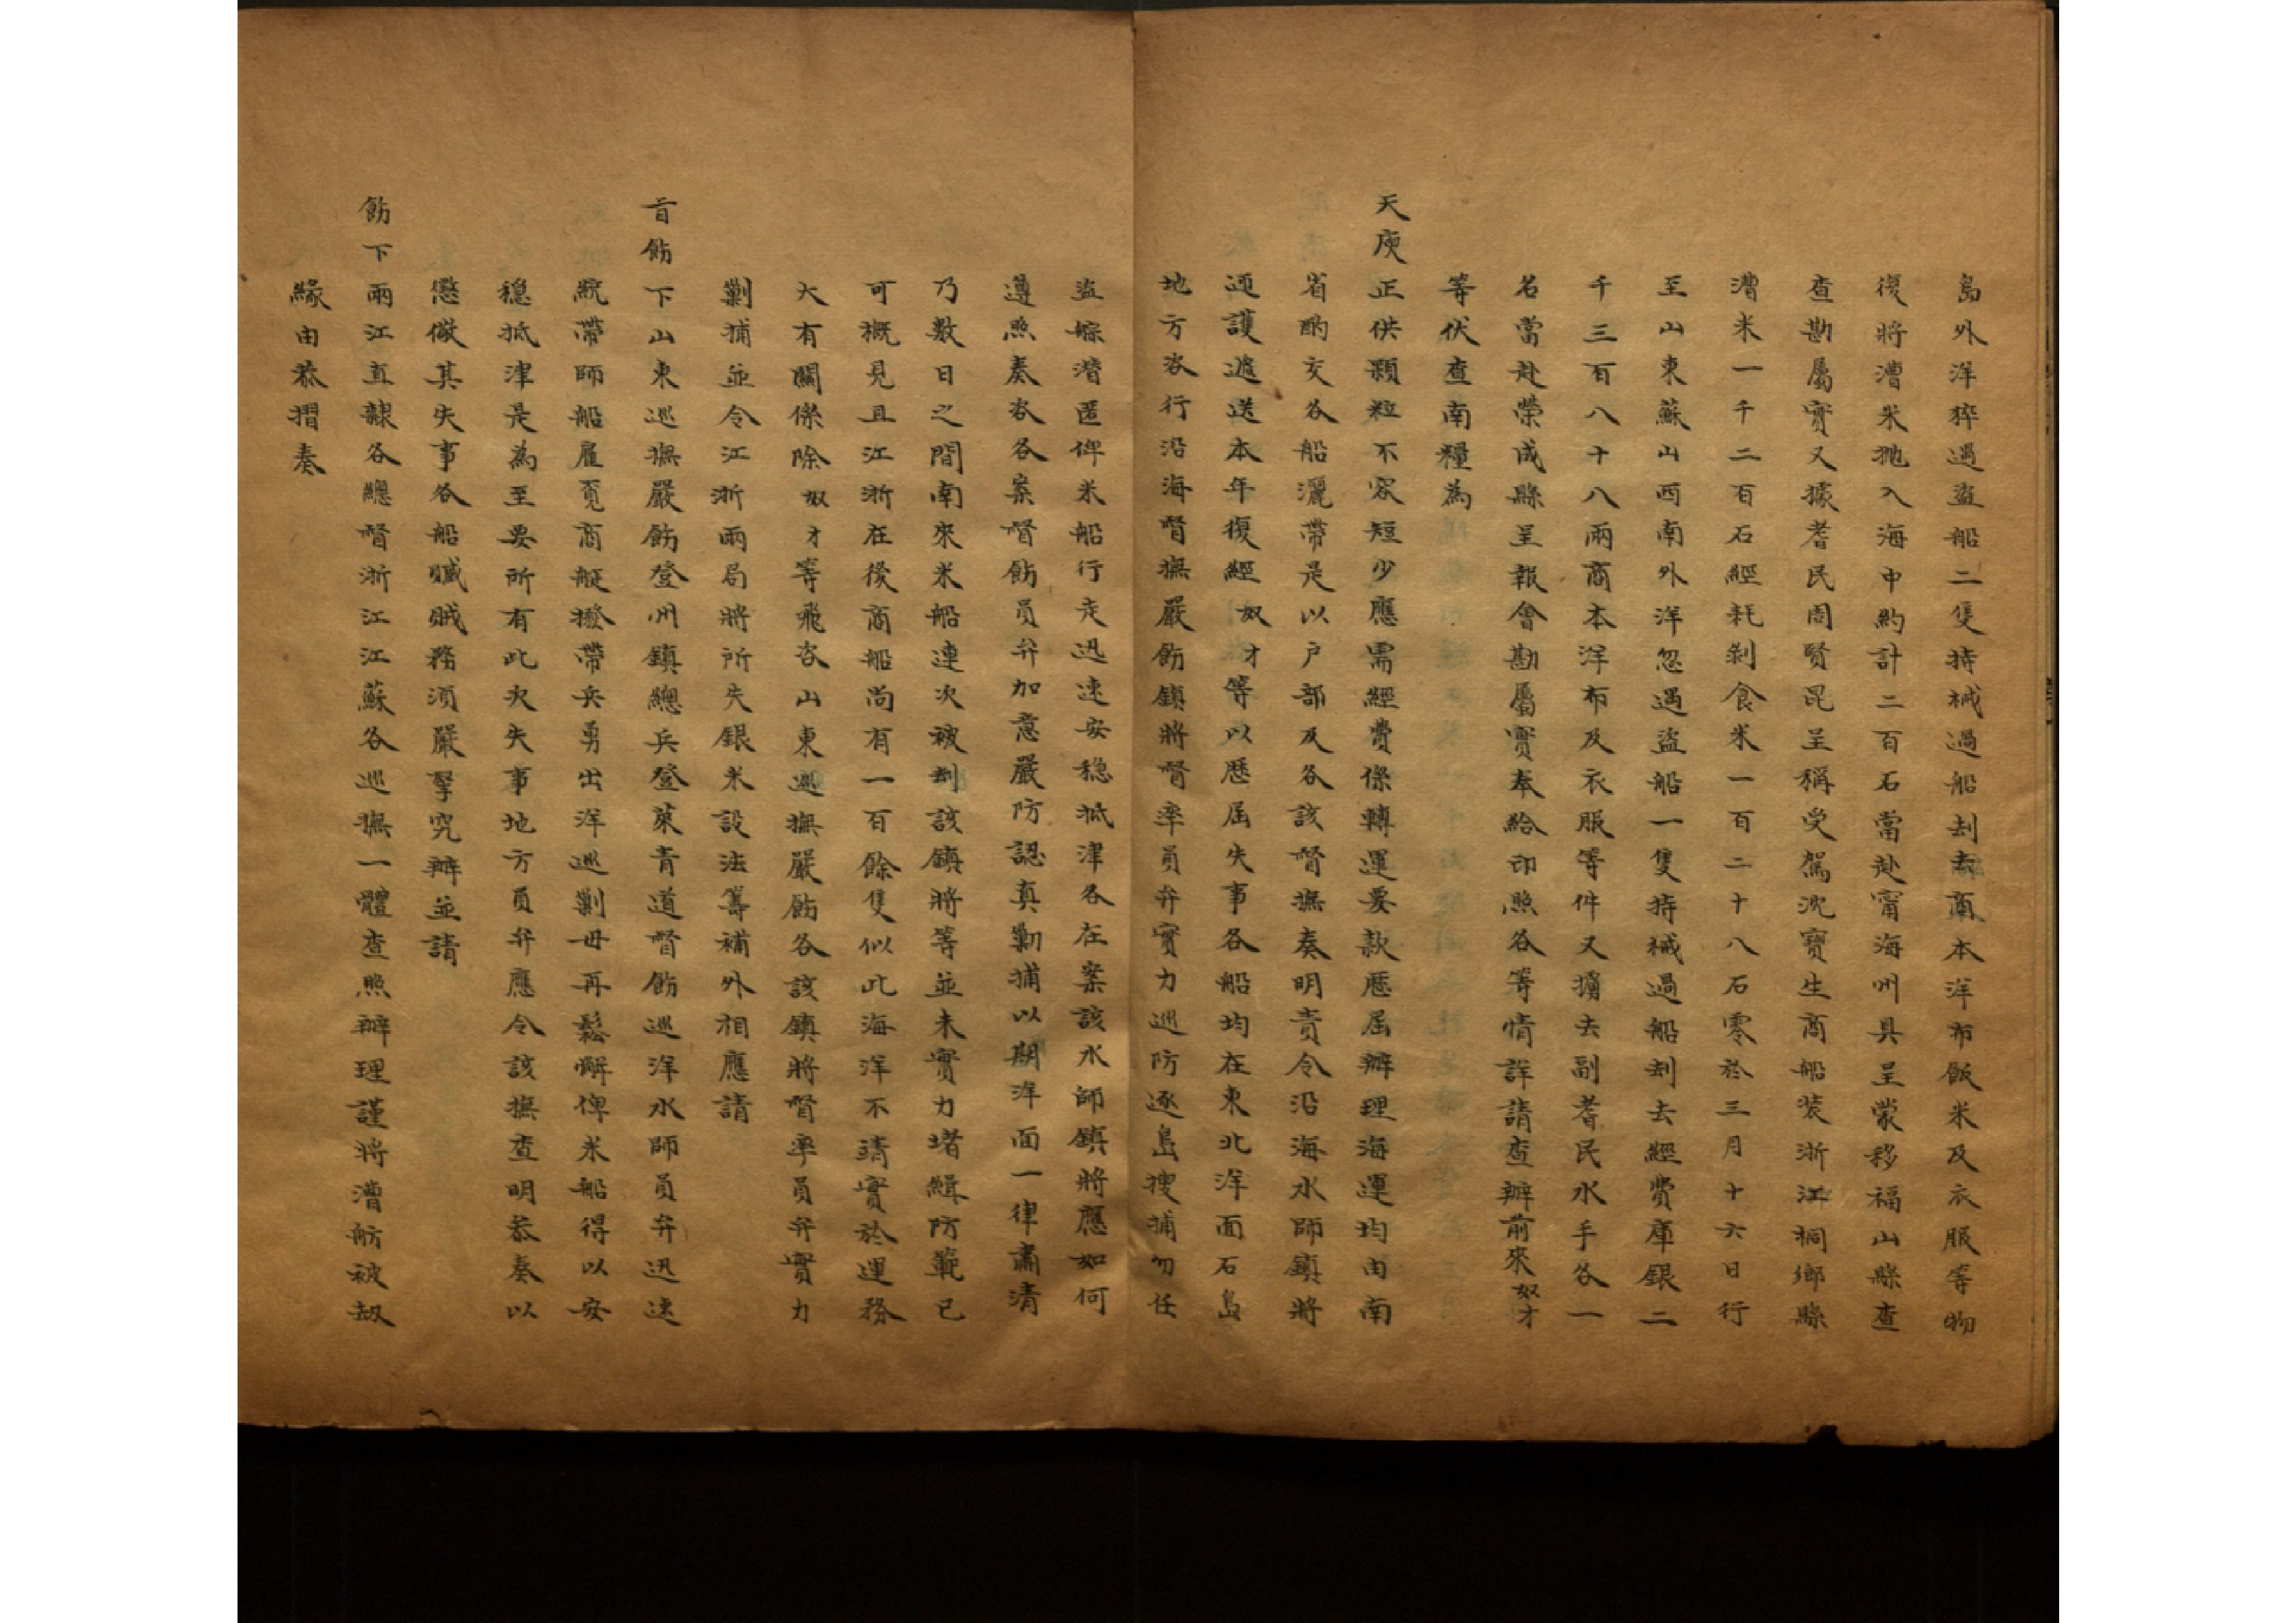 島外洋猝遇盜船二隻持械過船刦去商本洋布飯米及衣服等物
復將漕米抛入海中約計二百石當赴甯海州具呈蒙移福山縣查
查勘屬實又據耆民周賢昆呈稱受駕沈寶生商船裝浙江桐鄉縣
漕米一千二百石經耗剝食米一百二十八石零於三月十六日行
至山東蘇山西南外洋忽遇盜船一隻持械過船刦去經費庫銀二
千三百八十八兩商本洋布及衣服等件又擄去副耆民水手各一
名當赴榮成縣呈報會勘屬實奉給印照各等情詳請查辦前來奴才
等伏查南糧為
天庾正供顆粒不容短少應需經費係轉運要款歷屆辦理海運均由南
省酌交各船灑帶是以戶部及各該督撫奏明責令沿海水師鎮將
迎護遞送本年復經奴才等以歷屆失事各船均在東北洋面石島
地方咨行沿海督撫嚴飭鎮將督率員弁實力巡防逐島搜捕勿任
盜艅潛匿俾米船行走迅速安穩抵津各在案該水師鎮將應如何
遵照奏咨各案督飭員弁加意嚴防認真勦捕以期洋面一律肅清
乃數日之間南來米船連次被刦該鎮將等並未實力堵緝防範已
可概見且江浙在後商船尚有一百餘隻似此海洋不靖實於運務
大有關係除奴才等飛咨山東巡撫嚴飭各該鎮將督率員弁實力
剿捕並令江浙兩局將所失銀米設法籌補外相應請
旨飭下山東巡撫嚴飭登州鎮總兵登萊青道督飭巡洋水師員弁迅速
統帶師船雇覓商艇撥帶兵勇出洋巡剿毋再鬆懈俾米船得以安
穩抵津是為至要所有此次失事地方員弁應令該撫查明恭奏以
懲儆其失事各船贓賊務須嚴拏究辦並請
飭下兩江直隸各總督浙江江蘇各巡撫一體查照辦理謹將漕舫被劫
緣由恭摺奏